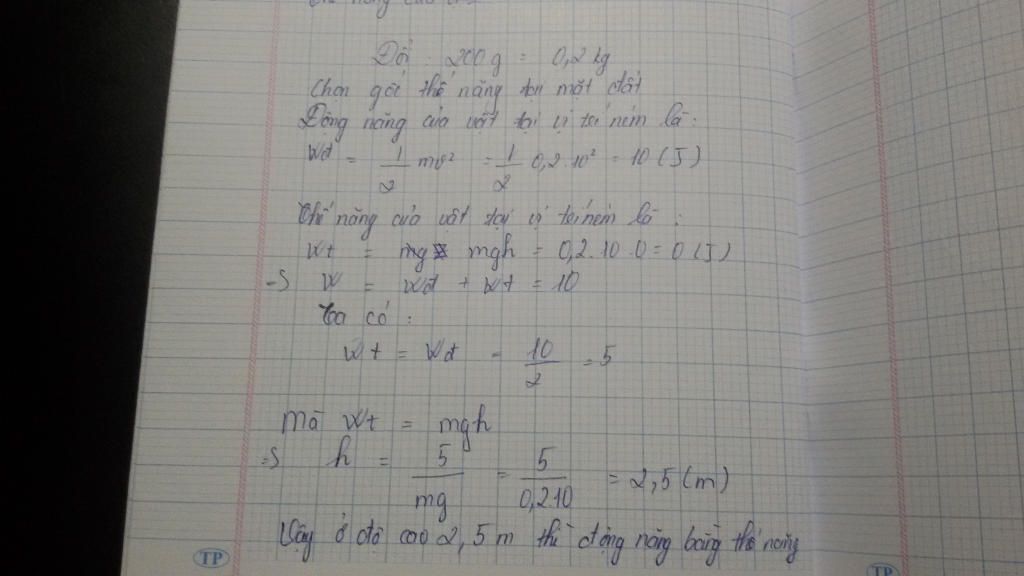 Đổi : 200 g = 0,2 kg
Chọn gốc thế năng tại mặt đất
Động năng của vật tại vị trí ném là :
Wđ = 1/2 mv² = 1/2 0,2 . 10² = 10 (J)
Thế năng của vật tại vị trí ném là :
Wt = mgh = 0,2 . 10 . 0 = 0 (J)
=> W = Wđ + Wt = 10
Ta có :
Wt = Wđ = 10/2 = 5
Mà Wt = mgh
=> h = 5/mg = 5/0,2.10 = 2,5 (m)
Vậy ở độ cao 2,5 m thì động năng bằng thế năng
TP
TP